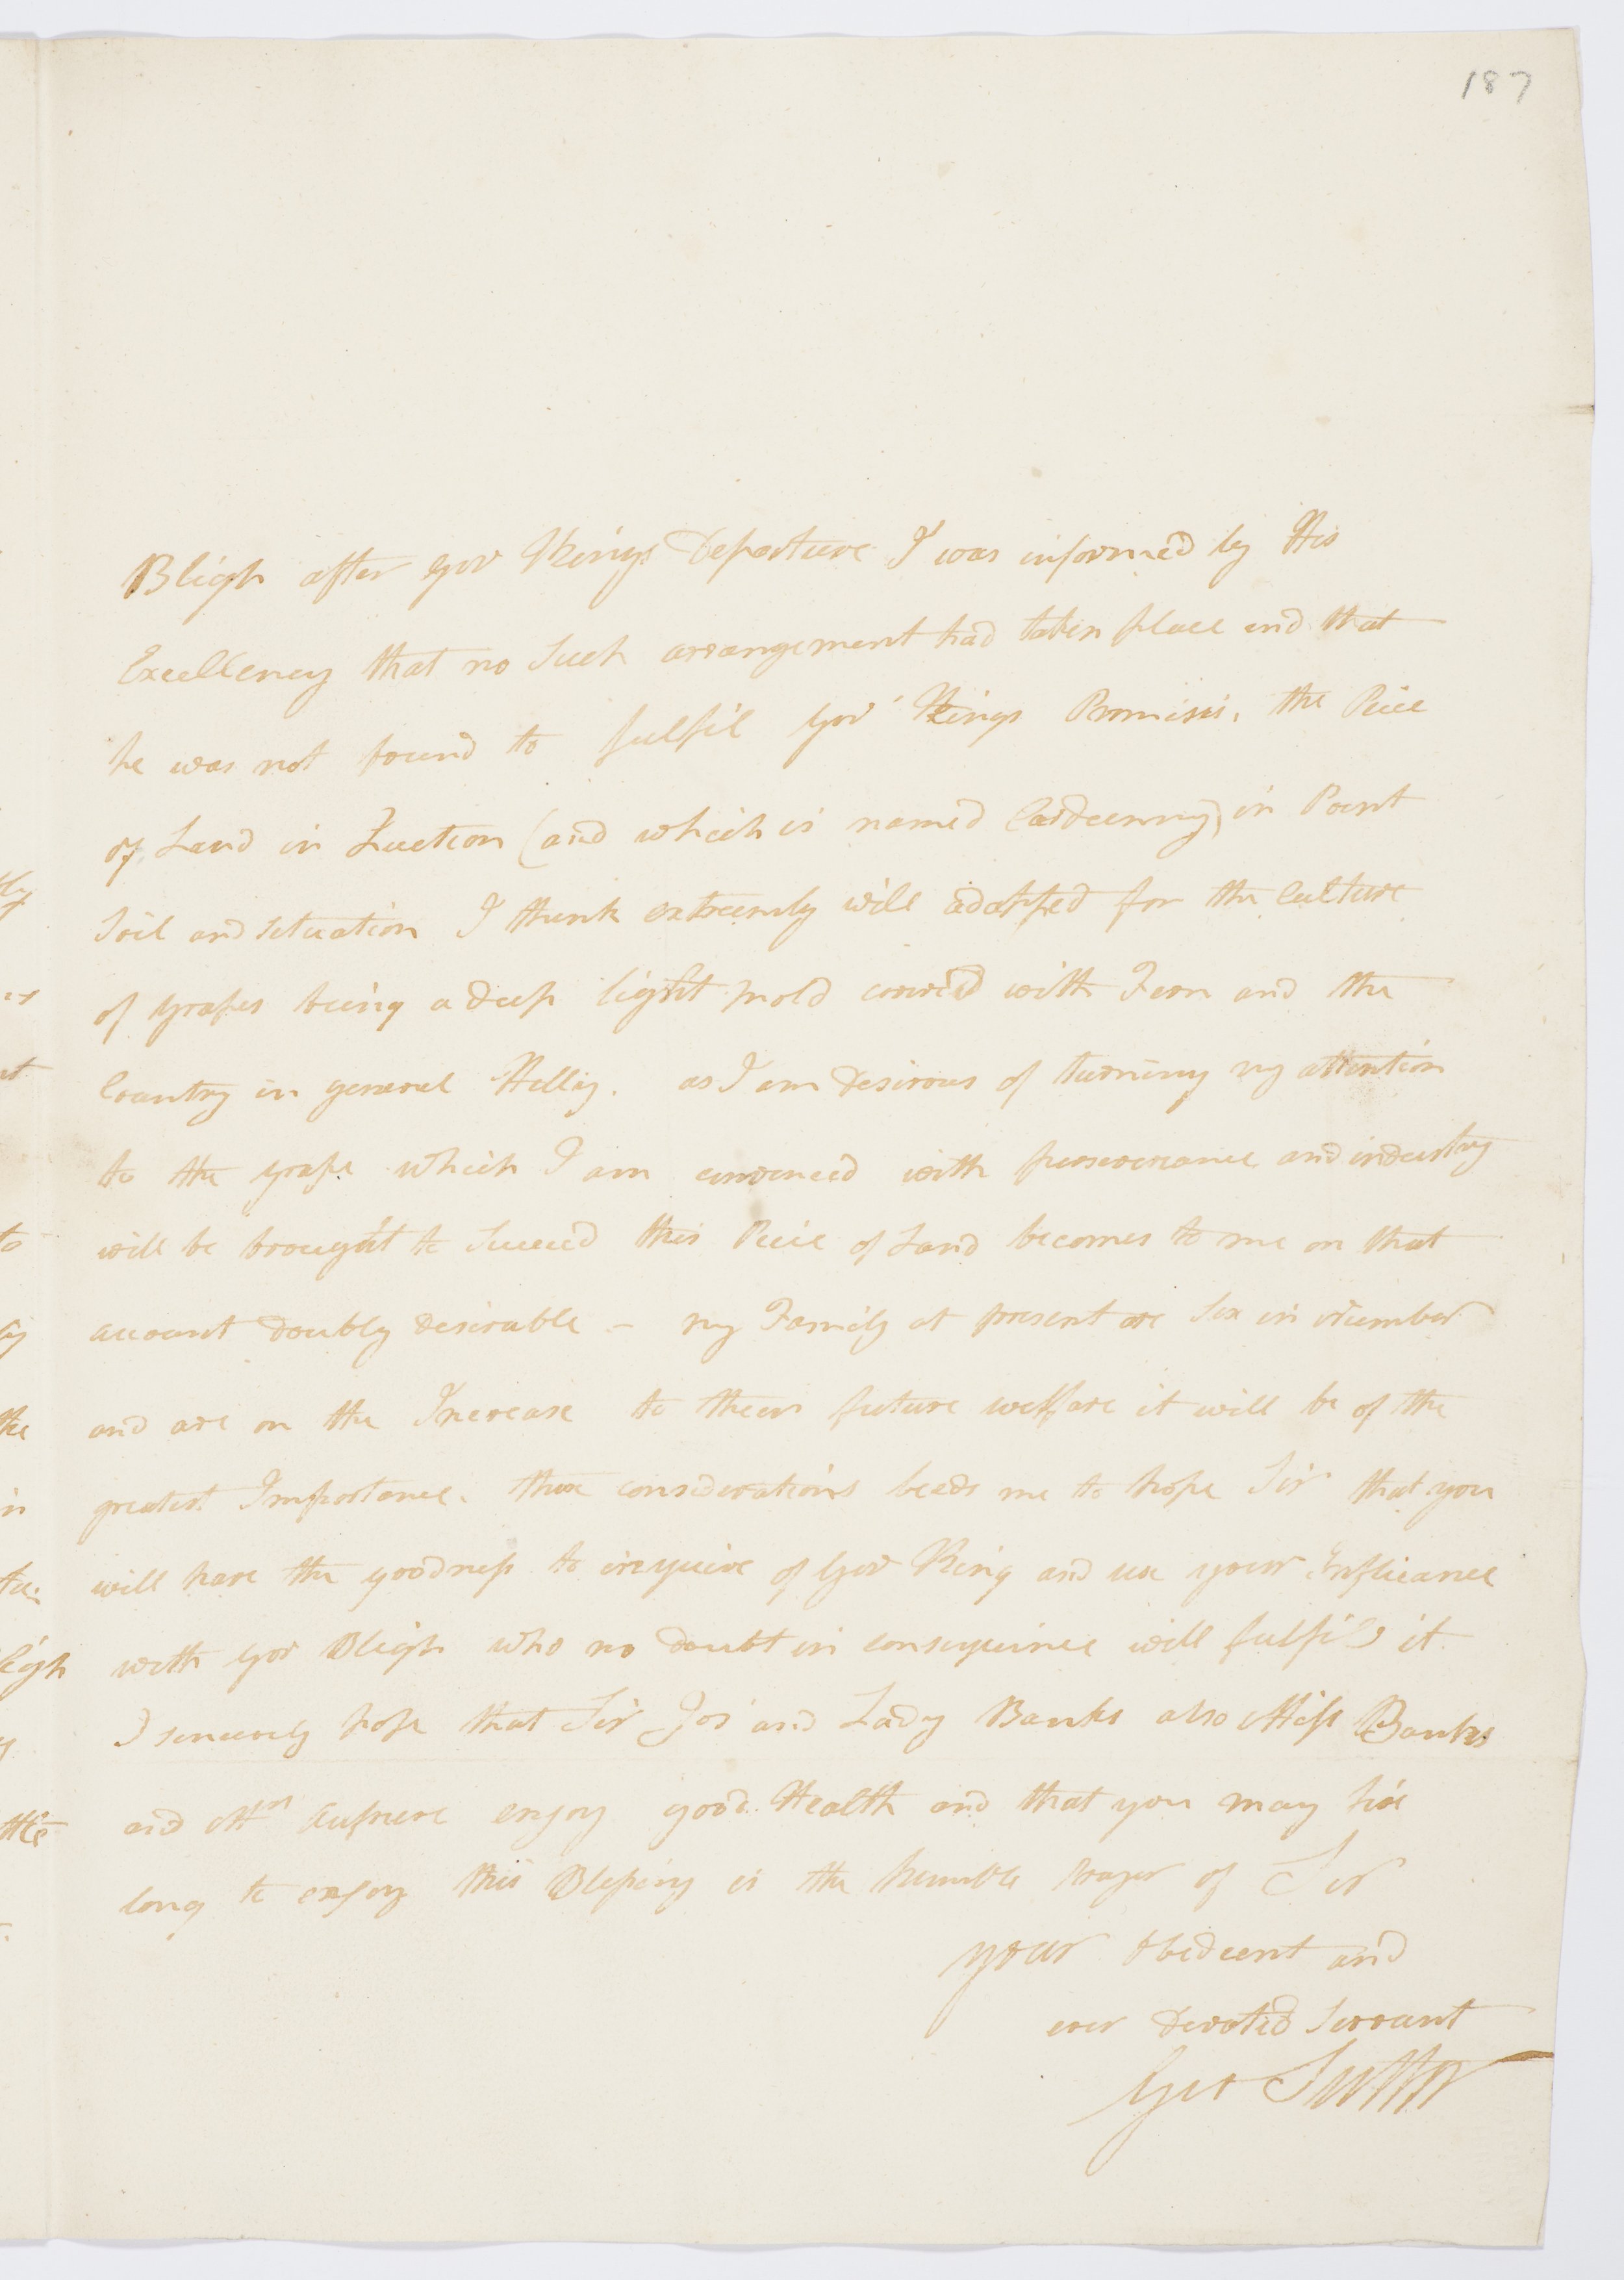 187
Bligh after Gov Kings Departure I was informed by His
Excellency that no Such arrangement had taken place and that
he was not bound to fulfil Gov Kings Promises, the Peice
of Land in Question (and which is named in Point
Soil and Situation I think extreemly will adapted for the Culture
of Grapes being a deep light mold coverd with Fern and the
Country in general Hilly. as I am desirous of turning my attention
to the grape which I am convinced with perseverance and industry
will be brought to Succeed this Peice of Land becomes to me on that
account doubly desirable - my Family at present are Six in Number
and are on the Increase to their future welfare it will be of the
greatest Importance. these considerations leads me to hope Sir that you
will have the goodness to inquire of Gov King and use your Influence
with Gov Bligh who no doubt in consequence will fulfil it
I sincerely hope that Sir Jos and Lady Banks also Miss Banks
and enjoy good Health and that you may live
long to enjoy this Blessing is the humble prayer of Sir
your obedient and
ever devoted Servant
Geo Suttor